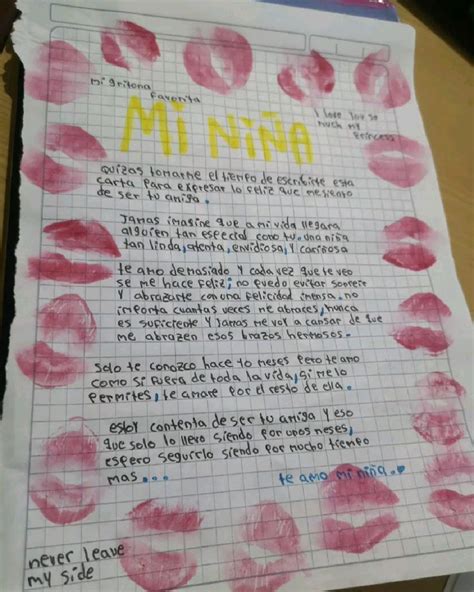 mi gritona
favorita
I love you so
much my
Princess
MI NIÑA
Quizas tomarme el tiempo de escribirte esta
carta para expresar lo feliz que me siento
de ser tu amiga.
Jamas imagine que a mi vida llegara
alguien tan especial como tu. una niña
tan linda, atenta, envidiosa, y cariñosa
te amo demasiado y cada vez que te veo
se me hace feliz; no puedo evitar sonreir
y abrazarte con una felicidad inmensa. no
importa cuantas veces me abraces, nunca
es suficiente y jamas me voy a cansar de que
me abrazen esos brazos hermosos.
Solo te conozco hace 10 meses pero te amo
como si fuera de toda la vida, si me lo
permites, te amare por el resto de ella.
estoy contenta de ser tu amiga y eso
que solo lo llevo siendo por unos meses,
espero seguirlo siendo por mucho tiempo
mas...
te amo mi niña.
never leave
my side